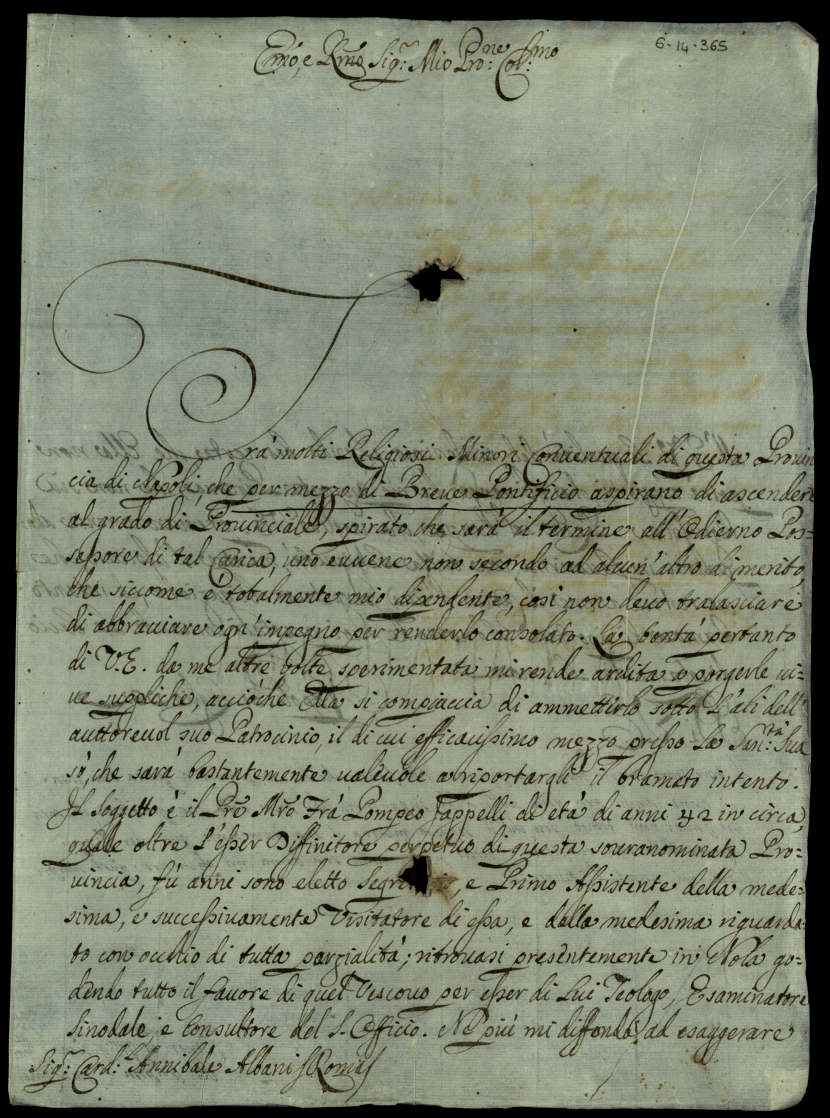 6-14-365
Emo, e Rmo Sig.r Mio Pro:ne Col:mo
Trà molti Religiosi Minori Conventuali di questa Provin
cia di Napoli, che per mezzo di Breve Pontificio aspirano di ascendere
al grado di Provinciale, spirato che sarà il termine all'Odierno Pos=
sessore di tal Carica, uno euuene non secondo ad alcun'altro di merito,
che siccome è totalmente mio dipendente, così non deuo tralasciare
di abbracciare ogn'impegno per renderlo consolato. La bontà pertanto
di V.E. da me altre volte sperimentata mi rende ardita a porgerle ui=
ue suppliche, acciòche Ella si compiaccia di ammetterlo sotto l'ali dell'
auttoreuol suo Patrocinio, il di cui efficacissimo mezzo presso La San:tà Sua
sò, che sarà bastantemente ualeuole a riportargli il bramato intento.
Il soggetto è il Prē Mrō Frà Pompeo Jappelli di età di anni 42 in circa,
quale oltre l'esser Diffinitore perpetuo di questa souranominata Pro=
uincia, fù anni sono eletto , e Primo Assistente della mede=
sima, e successiuamente Visitatore di essa, e dalla medesima riguarda=
to con occhio di tutta parzialità; ritrouasi presentemente in Nola go=
dendo tutto il fauore di quel Vescouo per esser di Lui Teologo, Esaminatore
Sinodale, e Consultore del S. Officio. Nè più mi diffondo ad esaggerare
Sig.r Card:le Annibale Albani Roma